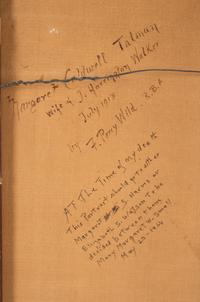 Margaret Caldwell Talman
wife of J. Harrington Walker
July 1918
by F. Percy Wild R.B.A
AT The Time of my death
This Portrait should go to either
Margaret S. Harms or
Elizabeth S. Watson To be
decided between them.
Mary Margaret W. Small
May 20